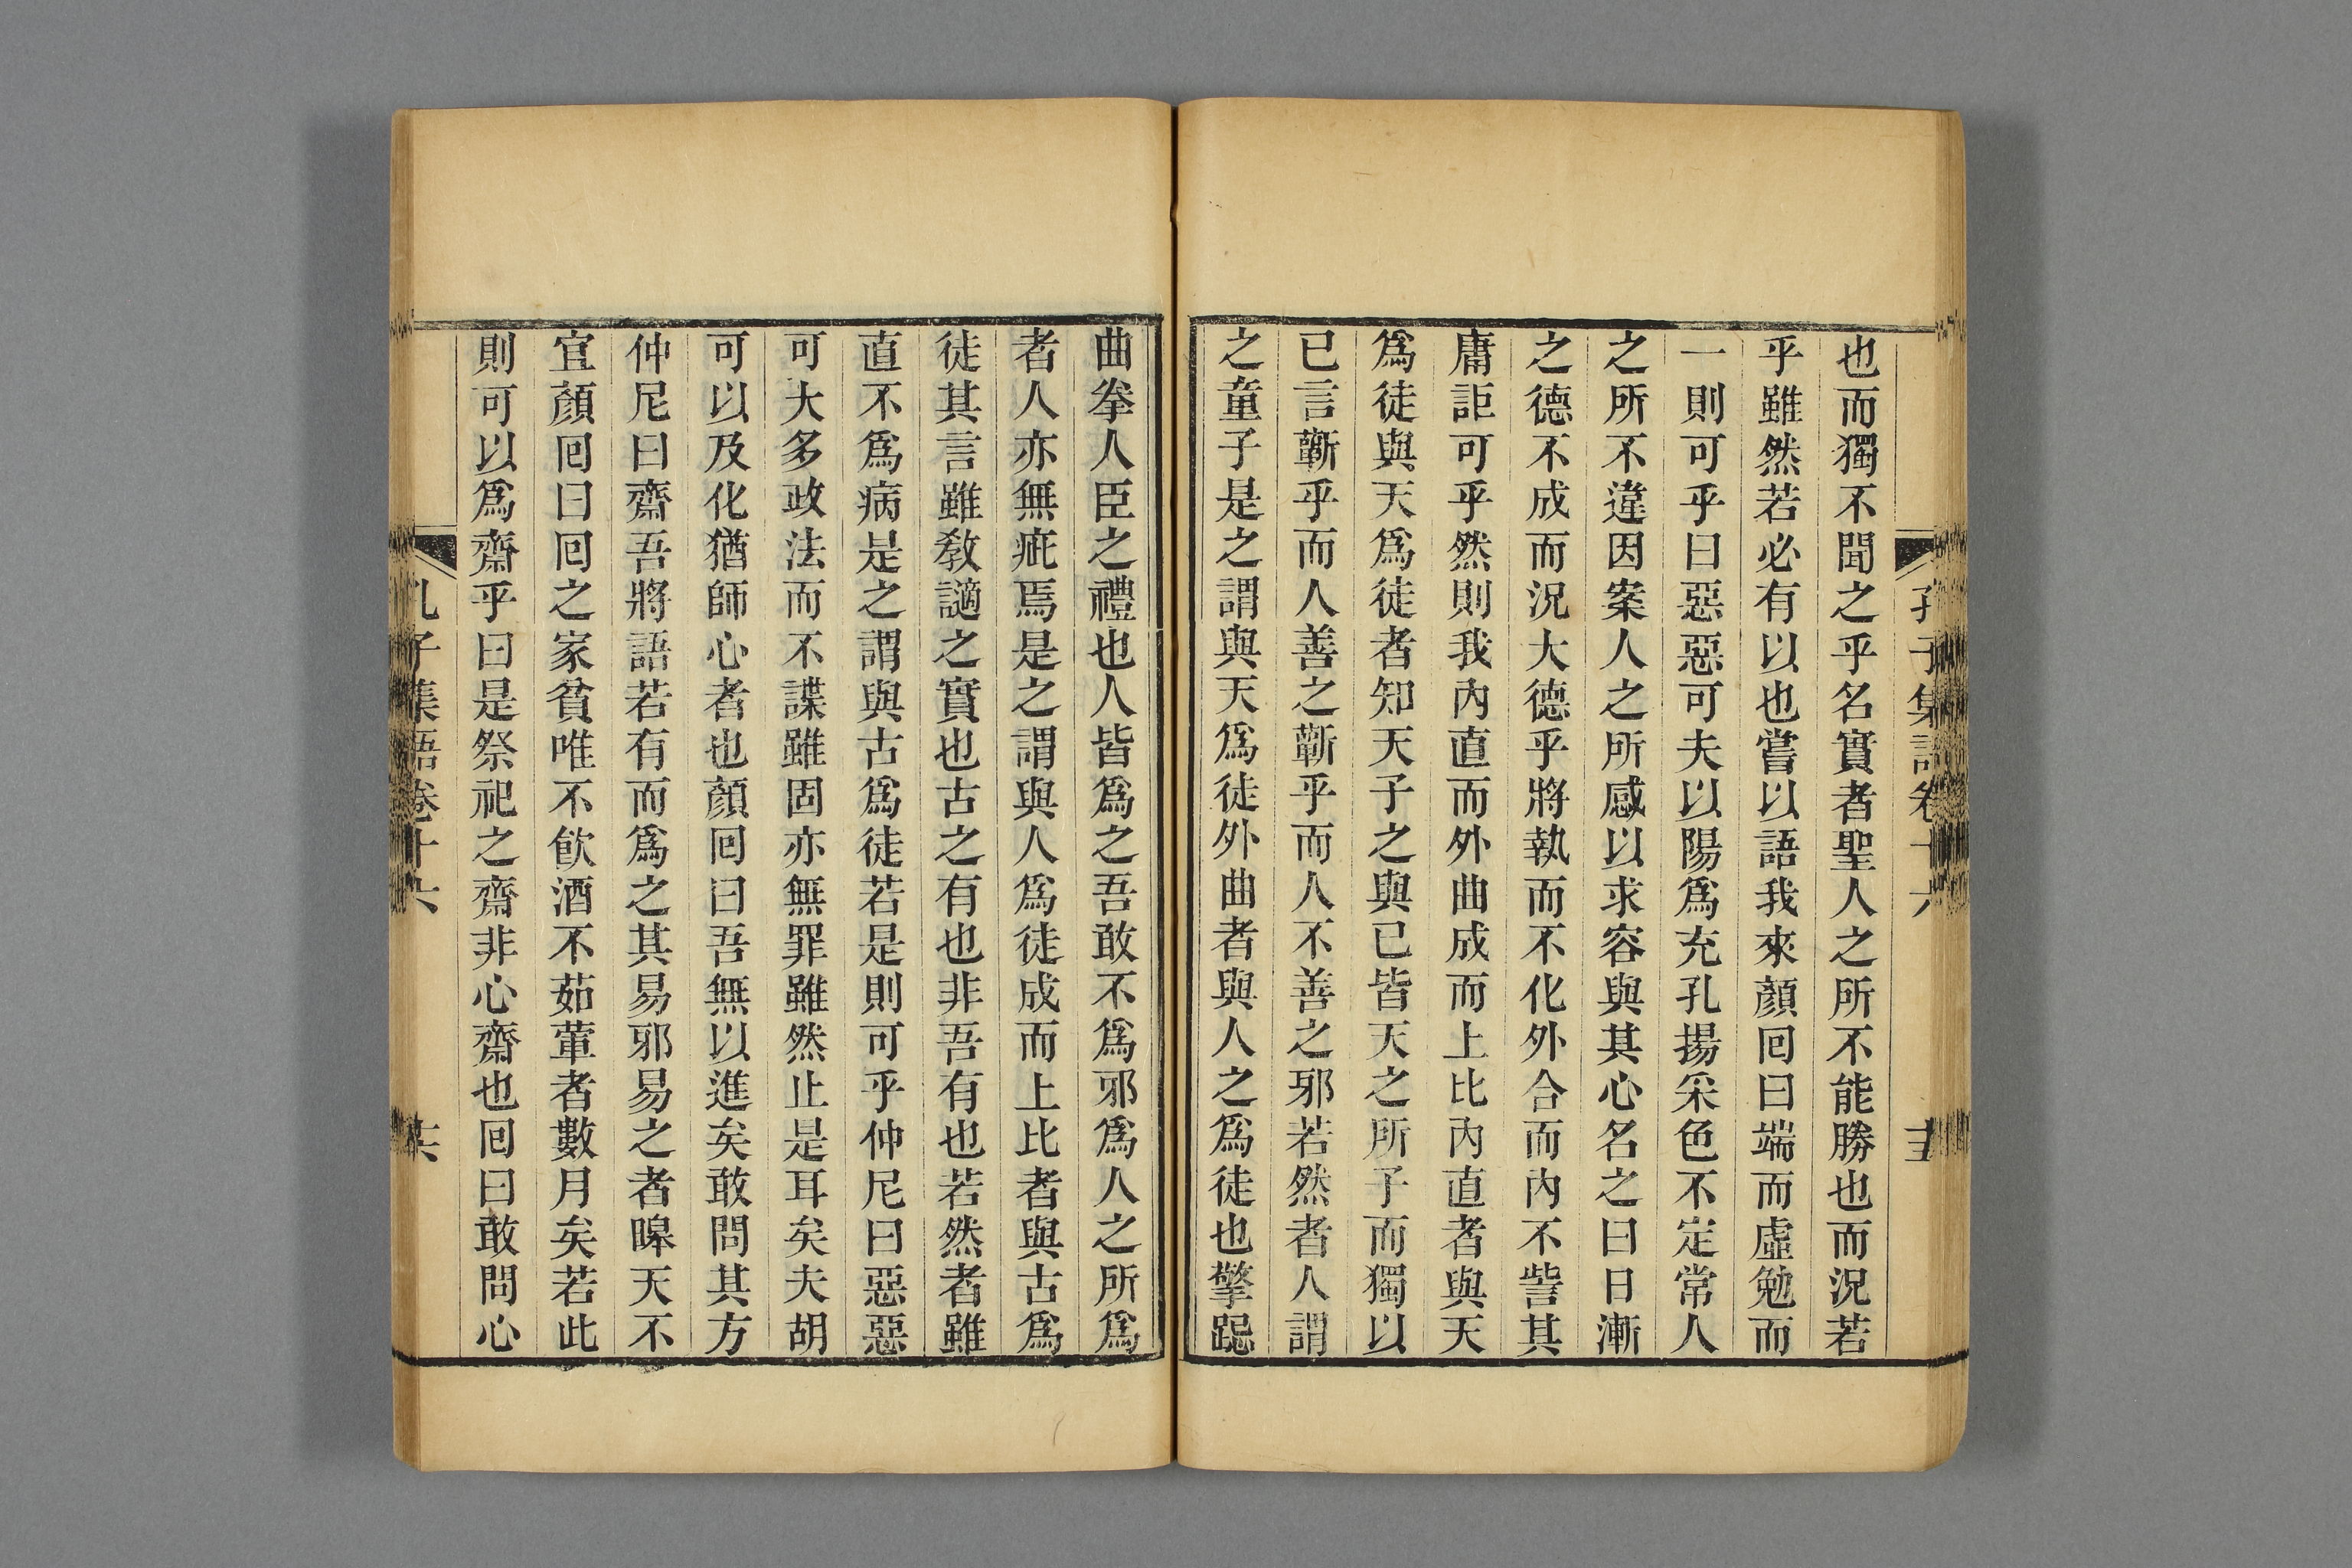 孔子集語卷十六
也而獨不聞之乎名實者聖人之所不能勝也而況若
乎雖然若必有以也嘗以語我來顏回曰端而虛勉而
一則可乎曰惡惡可夫以陽爲充孔揚采色不定常人
之所不違因案人之所感以求容與其心名之曰日漸
之德不成而況大德乎將執而不化外合而內不訾其
庸詎可乎然則我內直而外曲成而上比內直者與天
爲徒與天爲徒者知天子之與已皆天之所子而獨以
已言蘄乎而人善之蘄乎而人不善之邪若然者人謂
之童子是之謂與天爲徒外曲者與人之爲徒也擎跽
曲拳人臣之禮也人皆爲之吾敢不爲邪爲人之所爲
者人亦無疵焉是之謂與人爲徒成而上比者與古爲
徒其言雖敎讁之實也古之有也非吾有也若然者雖
直不爲病是之謂與古爲徒若是則可乎仲尼曰惡惡
可大多政法而不諜雖固亦無罪雖然止是耳矣夫胡
可以及化猶師心者也顏回曰吾無以進矣敢問其方
仲尼曰齋吾將語若有而爲之其易邪易之者皞天不
宜顏回曰回之家貧唯不飮酒不茹葷者數月矣若此
則可以爲齋乎曰是祭祀之齋非心齋也回曰敢問心
孔子集語卷十六